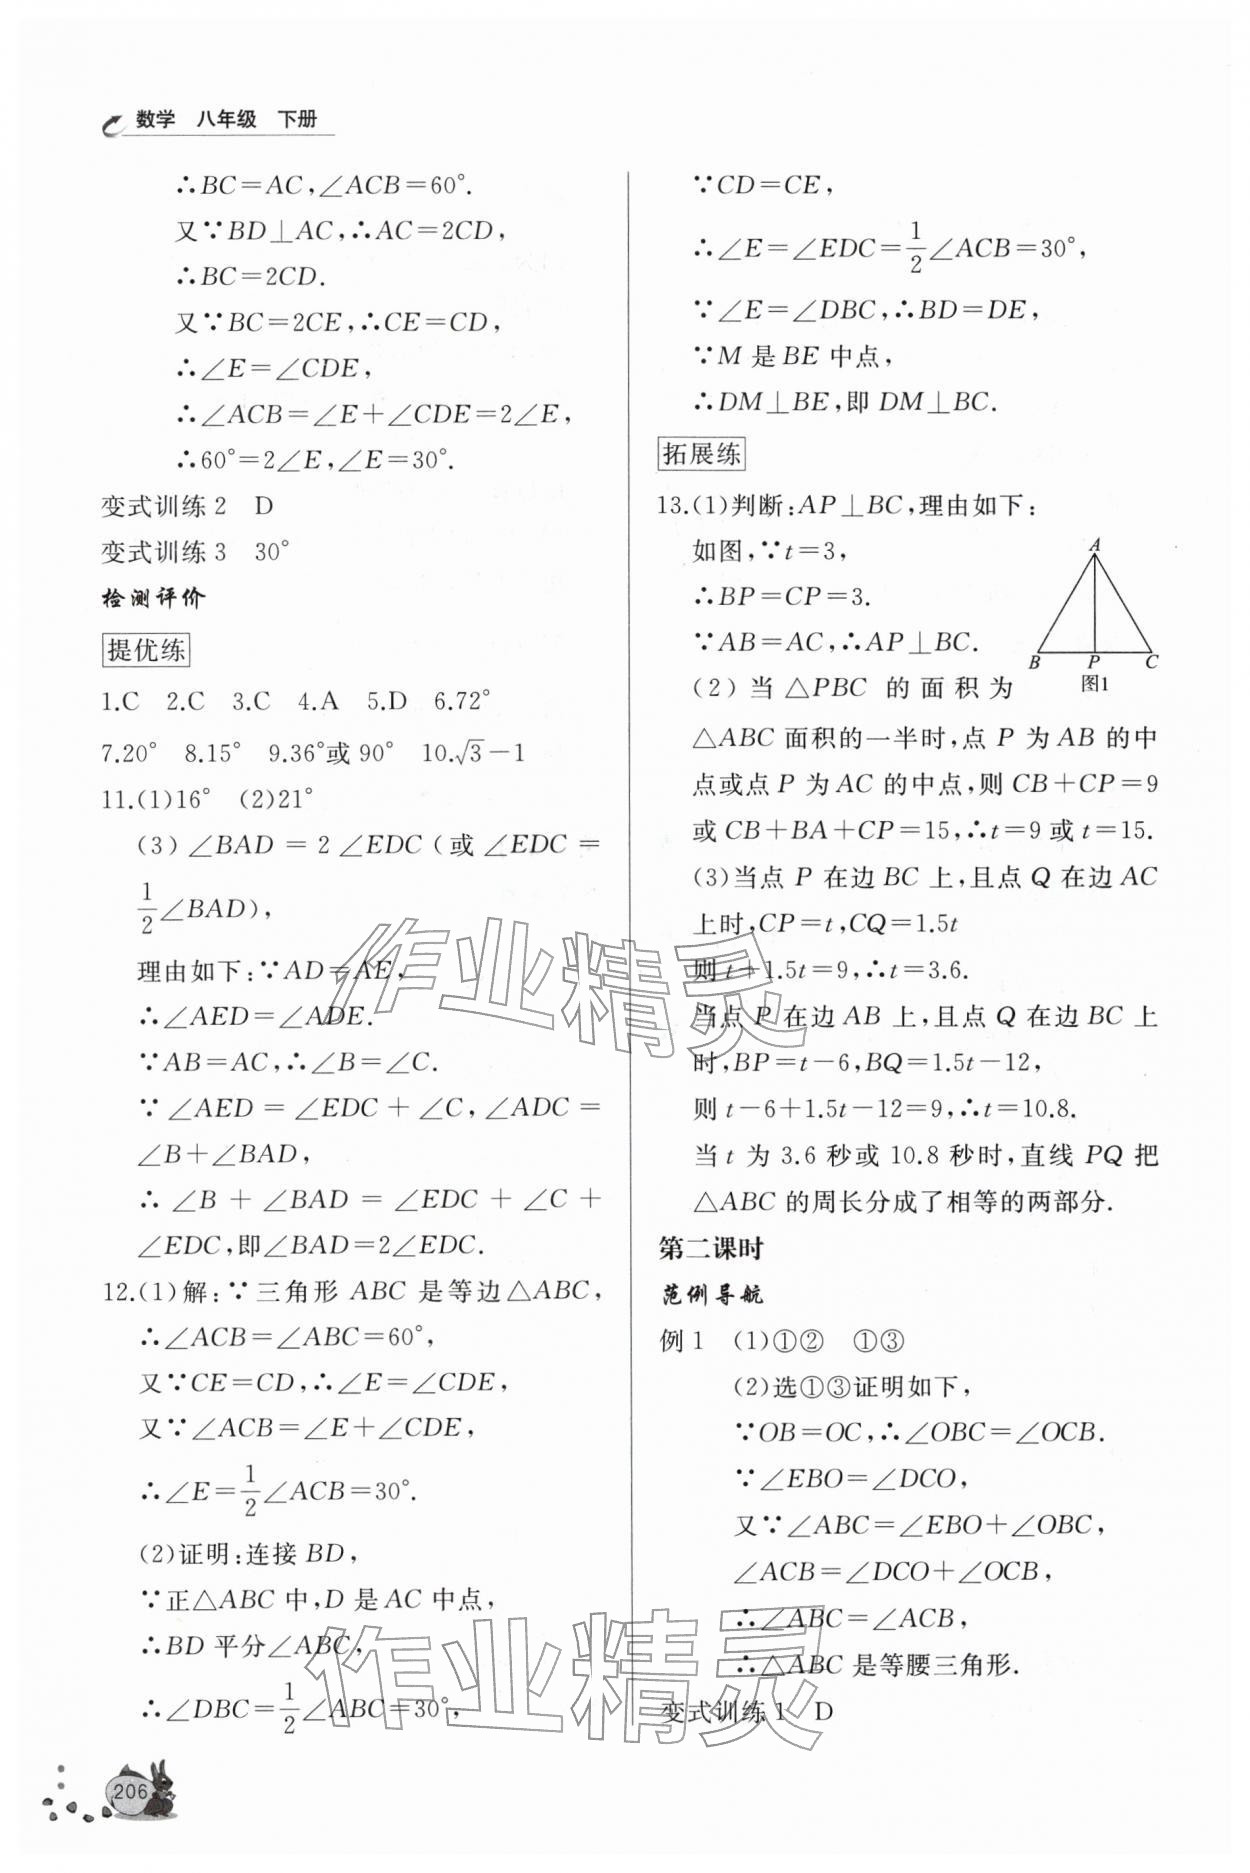 数学 八年级 下册
∴BC=AC,∠ACB=60°.
又∵BD⊥AC,∴AC=2CD,
∴BC=2CD.
又∵BC=2CE,∴CE=CD,
∴∠E=∠CDE,
∴∠ACB=∠E+∠CDE=2∠E,
∴60°=2∠E,∠E=30°.
变式训练2 D
变式训练3 30°
检测评价
提优练
1.C 2.C 3.C 4.A 5.D 6.72°
7.20° 8.15° 9.36°或90° 10.√3-1
11.(1)16° (2)21°
(3)∠BAD=2∠EDC(或∠EDC=
1/2∠BAD),
理由如下:∵AD=AE,
∴∠AED=∠ADE.
∵AB=AC,∴∠B=∠C.
∵∠AED=∠EDC+∠C,∠ADC=
∠B+∠BAD,
∴∠B+∠BAD=∠EDC+∠C+
∠EDC,即∠BAD=2∠EDC.
12.(1)解:∵三角形ABC是等边△ABC,
∴∠ACB=∠ABC=60°,
又∵CE=CD,∴∠E=∠CDE,
又∵∠ACB=∠E+∠CDE,
∴∠E=1/2∠ACB=30°.
(2)证明:连接BD,
∵正△ABC中,D是AC中点,
∴BD平分∠ABC,
∴∠DBC=1/2∠ABC=30°,
∵CD=CE,
∴∠E=∠EDC=1/2∠ACB=30°,
∵∠E=∠DBC,∴BD=DE,
∵M是BE中点,
∴DM⊥BE,即DM⊥BC.
拓展练
13.(1)判断:AP⊥BC,理由如下:
如图,∵t=3,
∴BP=CP=3.
∵AB=AC,∴AP⊥BC.
A
B P C
图1
(2)当△PBC的面积为
△ABC面积的一半时,点P为AB的中
点或点P为AC的中点,则CB+CP=9
或CB+BA+CP=15,∴t=9或t=15.
(3)当点P在边BC上,且点Q在边AC
上时,CP=t,CQ=1.5t
则t+1.5t=9,∴t=3.6.
当点P在边AB上,且点Q在边BC上
时,BP=t-6,BQ=1.5t-12,
则t-6+1.5t-12=9,∴t=10.8.
当t为3.6秒或10.8秒时,直线PQ把
△ABC的周长分成了相等的两部分.
第二课时
范例导航
例1 (1)①② ①③
(2)选①③证明如下,
∵OB=OC,∴∠OBC=∠OCB.
∵∠EBO=∠DCO,
又∵∠ABC=∠EBO+∠OBC,
∠ACB=∠DCO+∠OCB,
∴∠ABC=∠ACB,
∴△ABC是等腰三角形.
变式训练1 D
206
作业精灵
作业精灵